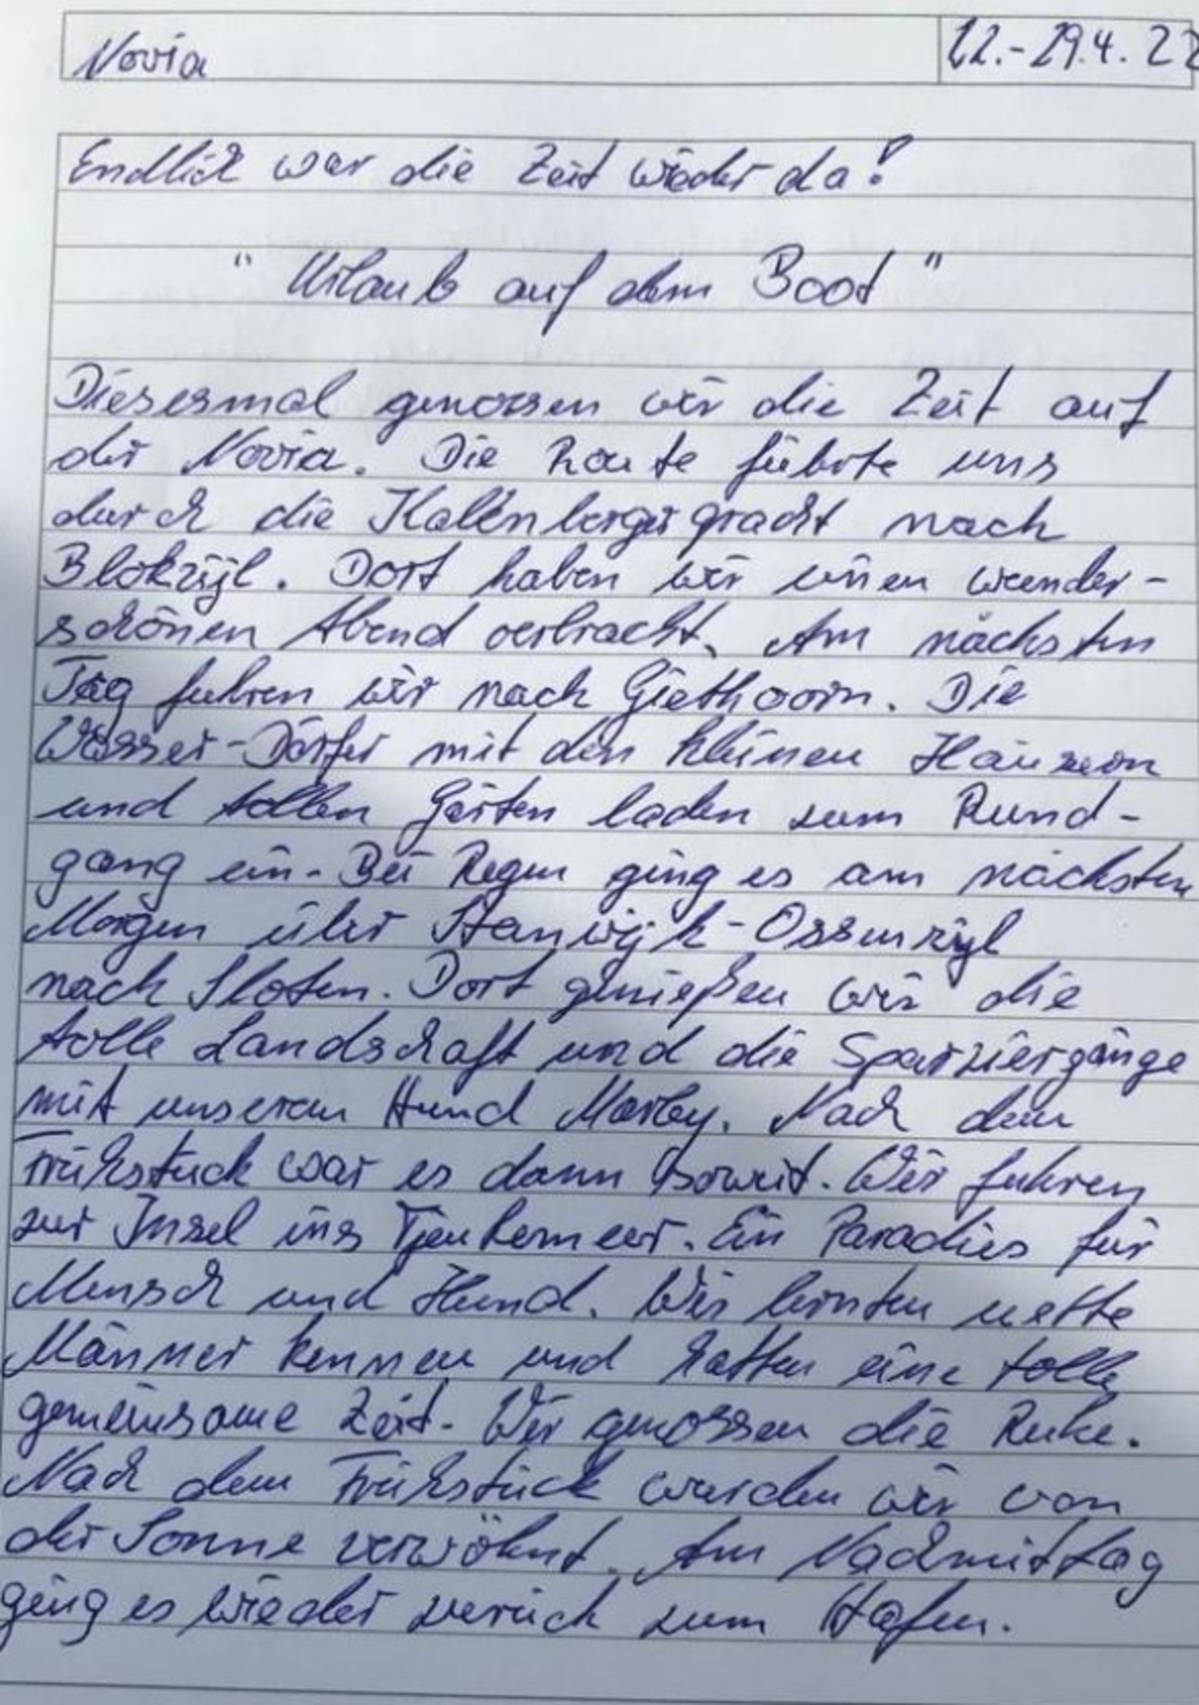 Novia
22.-29.4.22
Endlich war die Zeit wieder da!
" Urlaub auf dem Boot "
Diesesmal genossen wir die Zeit auf
der Novia. Die Route führte uns
durch die Kalenbergergracht nach
Blokzijl. Dort haben wir einen wunder-
schönen Abend verbracht. Am nächsten
Tag fuhren wir nach Giethoorn. Die
Wasser-Dörfer mit den kleinen Häusern
und tollen Gärten laden zum Rund-
gang ein. Bei Regen ging es am nächsten
Morgen über Stenwijk-Ossenzijl
nach Sloten. Dort genießen wir die
tolle Landschaft und die Spaziergänge
mit unserem Hund Marley. Nach dem
Frühstück war es dann soweit. Wir fuhren
zur Insel ins Tjeukemeer. Ein Paradies für
Mensch und Hund. Wir lernten nette
Männer kennen und hatten eine tolle
gemeinsame Zeit. Wir genossen die Ruhe.
Nach dem Frühstück wurden wir von
der Sonne verwöhnt. Am Nachmittag
ging es wieder zurück zum Hafen.